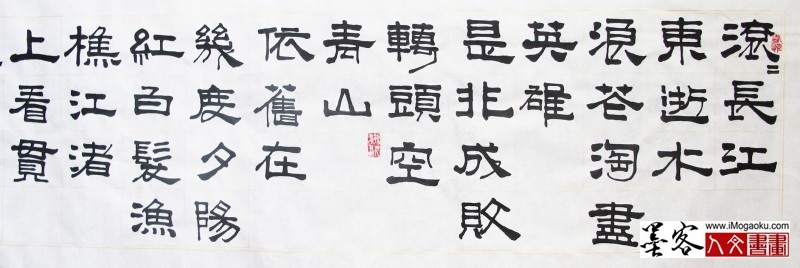 滚〻長江
東逝水
浪花淘盡
英雄
是非成敗
轉頭空
青山
依舊在
幾度夕陽
紅白髮漁
樵江渚
上看貫
墨客
www.iMogaoku.com
人文書畫